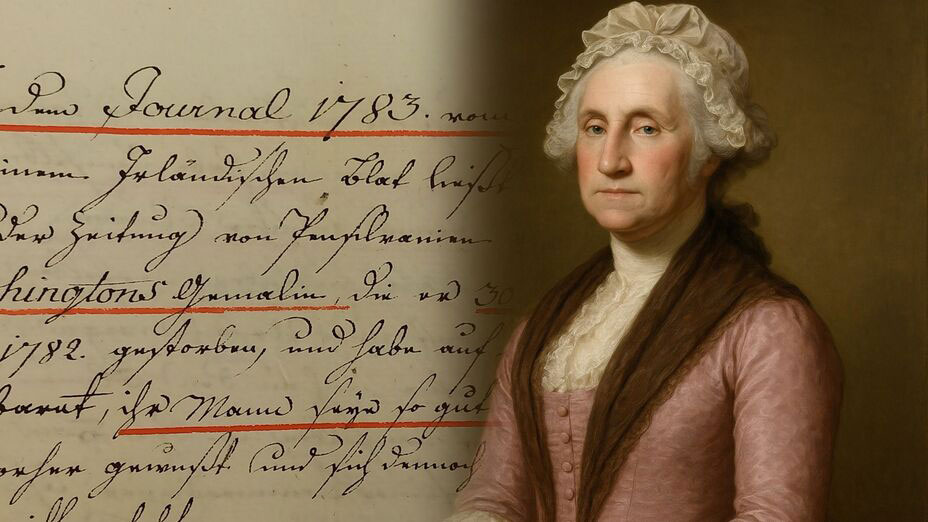 dem Journal 1783. vom
inem Irländischen Blat ließt
der Zeitung) von Pensilvanien
hingtons Gemalin, die er 30
1782. gestorben, und habe auf
barnt, ihr Mann seye so gut
orher gewußt und sich dennoch